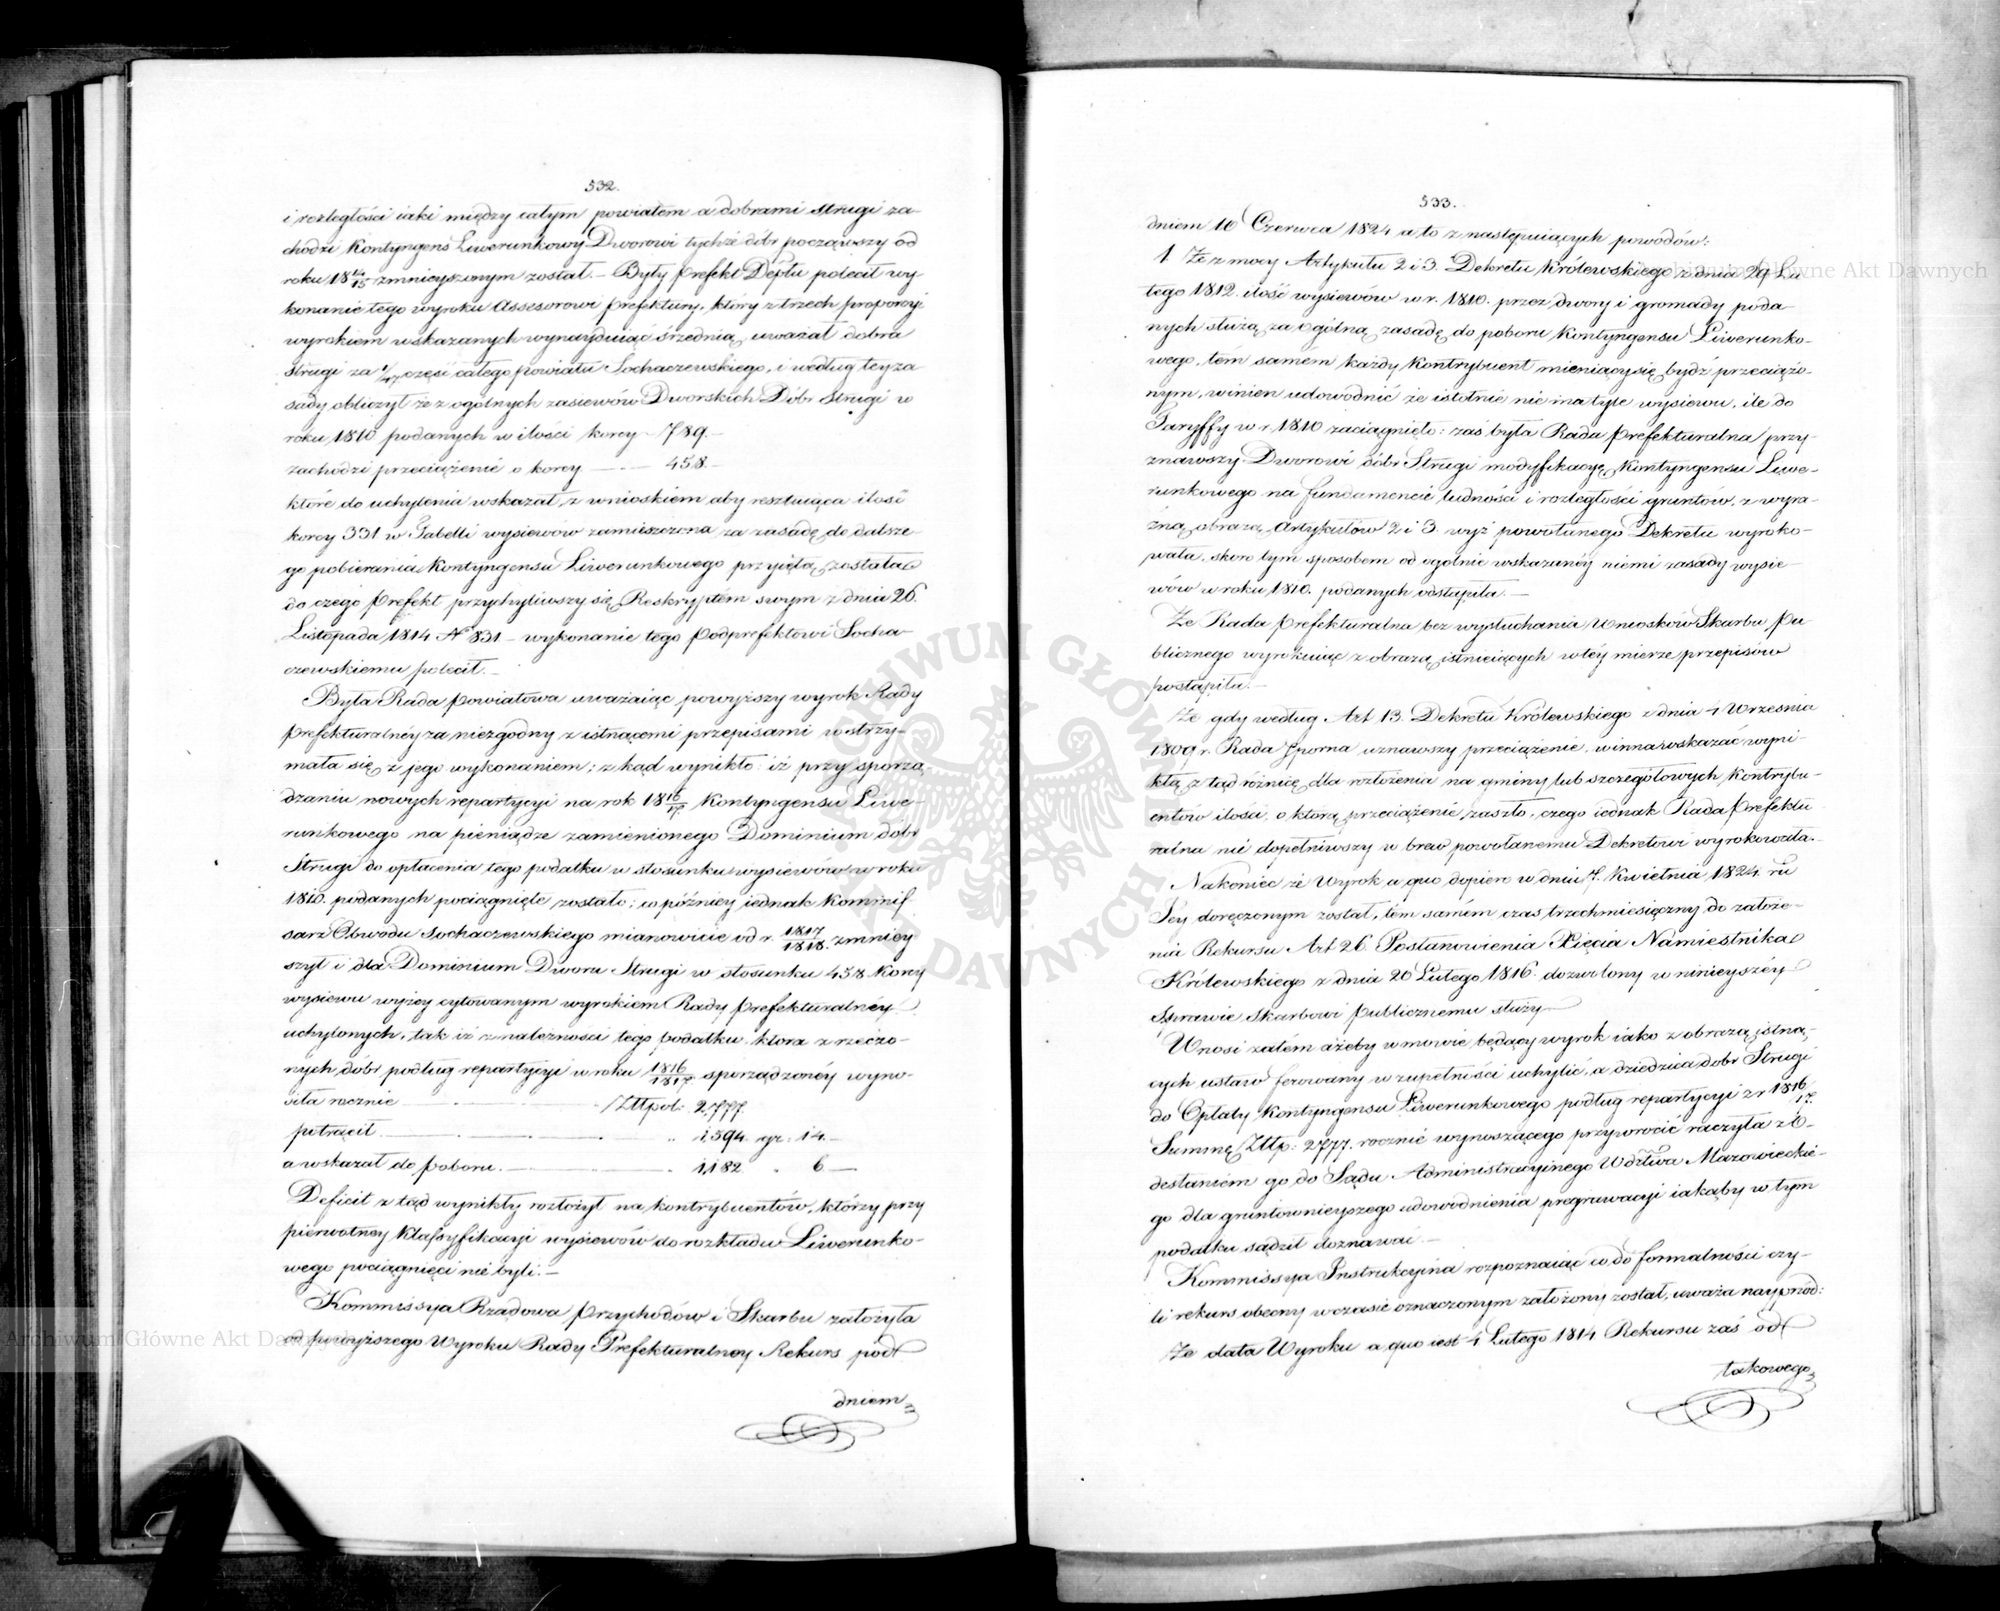 532.
i rozległości iaki między całym powiatem a dobrami Strugi za-
chodzi Kontyngens Liwerunkowy Dworowi tychże dóbr począwszy od
roku 18 14/15 zmnieyszonym został. – Były Prefekt Deptu polecił wy
konanie tego wyroku Assesorowi Prefektury, który z trzech proporcyi
wyrokiem wskazanych wynayduiąc średnią uważał dobra
Strugi za 1/47 części całego powiatu Sochaczewskiego, i według tey za
sady obliczył że z ogólnych zasiewów Dworskich Dóbr Strugi w
roku 1810 podanych w ilości korcy – 789. –
zachodzi przeciążenie o korcy — 458. –
które do uchylenia wskazał, z wnioskiem aby resztuiąca ilość
korcy 331 w Tabelli wysiewów zamieszczona za zasadę do dalsze-
go pobierania Kontyngensu Liwerunkowego przyiętą została
do czego Prefekt przychyliwszy się Reskryptem swym z dnia 26.
Listopada 1814 No 831 – wykonanie tego Podprefektowi Socha-
czewskiemu polecił. –
Była Rada Powiatowa uważaiąc powyższy wyrok Rady
Prefekturalnéy za niezgodny z istnącemi przepisami wstrzy-
mała się z jego wykonaniem; z kąd wynikło: iż przy sporzą
dzaniu nowych repartycyi na rok 18 16/17. Kontyngensu Liwe-
runkowego na pieniądze zamienionego Dominium dóbr
Strugi do opłacenia tego podatku w stosunku wysiewów w roku
1810. podanych pociągnięte zostało; w późniey iednak Kommis
sarz Obwodu Sochaczewskiego mianowicie od r. 1817/1818. zmniey
szył i dla Dominium Dworu Strugi w stosunku 458. Korcy
wysiewu wyżey cytowanym wyrokiem Rady Prefekturalnéy
uchylonych, tak iż z należności tego podatku która z rzeczo-
nych dóbr podług repartycyi w roku 1816/1817. sporządzonéy wyno-
siła rocznie — Złtpol: 2777.
potrącił — „ 1594. gr: 14. –
a wskazał do poboru. — „ 1182. „ 6 —
Deficit z tąd wynikły rozłożył na kontrybuentów, którzy przy
pierwotney Klassyfikacyi wysiewów do rozkładu Liwerunko-
wego pociągnięci nie byli. –
Kommissya Rządowa Przychodów i Skarbu założyła
od powyższego Wyroku Rady Prefekturalney Rekurs pod
dniem
533.
dniem 16 Czerwca 1824 a to z następuiących powodów:
1 Że z mocy Artykułu 2 i 3. Dekretu Królewskiego z dnia 29 Lu
tego 1812. ilość wysiewów w r. 1810. przez dwory i gromady poda
nych służą za ogólną zasadę do poboru Kontyngensu Liwerunko-
wego, tém samém każdy Kontrybuent mieniący się bydź przeciążo-
nym, winien udowodnić że istotnie nie ma tyle wysiewu, ile do
Taryffy w r. 1810 zaciągnięto: zaś była Rada Prefekturalna przy-
znawszy Dworowi dóbr Strugi modyfikacyę Kontyngensu Liwe-
runkowego na fundamencie ludności i rozległości gruntów, z wyra-
źną obrazą Artykułów 2 i 3. wyż powołanego Dekretu wyroko-
wała, skoro tym sposobem od ogólnie wskazanéy niemi zasady wysie-
wów w roku 1810. podanych odstąpiła. –
Że Rada Prefekturalna bez wysłuchania Wniosków Skarbu Pu-
blicznego wyrokuiąc z obrazą istnieiących w téy mierze przepisów
postąpiła. –
Że gdy według Art 13. Dekretu Królewskiego z dnia 4 Września
1809 r. Rada Sporna uznawszy przeciążenie, winna wskazać wyni-
kłą z tąd różnicę dla rozłożenia na gminy lub szczegółowych Kontrybu-
entów ilości, o którą przeciążenie zaszło, czego iednak Rada Prefektu-
ralna nie dopełniwszy w brew powołanemu Dekretowi wyrokowała. –
Nakoniec że Wyrok a quo dopiero w dniu 7. Kwietnia 1824. ru
Jey doręczonym został, tém samém czas trzechmiesięczny do założe-
nia Rekursu Art 26. Postanowienia Xięcia Namiestnika
Królewskiego z dnia 20 Lutego 1816. dozwolony w ninieyszéy
Sprawie Skarbowi Publicznemu służy –
Wnosi zatém ażeby w mowie będący wyrok iako z obrazą istną-
cych ustaw ferowany w zupełności uchylić, a dziedzica dobr Strugi
do Opłaty Kontyngensu Liwerunkowego podług repartycyi z r 18 16/17.
Summę Złtp: 2777. rocznie wynoszącego przywrocić raczyła z O-
desłaniem go do Sądu Administracyinego Wdztwa Mazowieckie-
go dla gruntownieyszego udowodnienia pregrawacyi iakąby w tym
podatku sądził doznawać –
Kommissya Instrukcyina rozpoznaiąc co do formalności czy-
li rekurs obecny w czasie oznaczonym założony został, uważa nayprzód:
Że data Wyroku a quo iest 4 Lutego 1814 Rekursu zaś od
takowego
Archiwum Główne Akt Dawnych
Archiwum Główne Akt Dawnych
ARCHIWUM GŁÓWNE AKT DAWNYCH